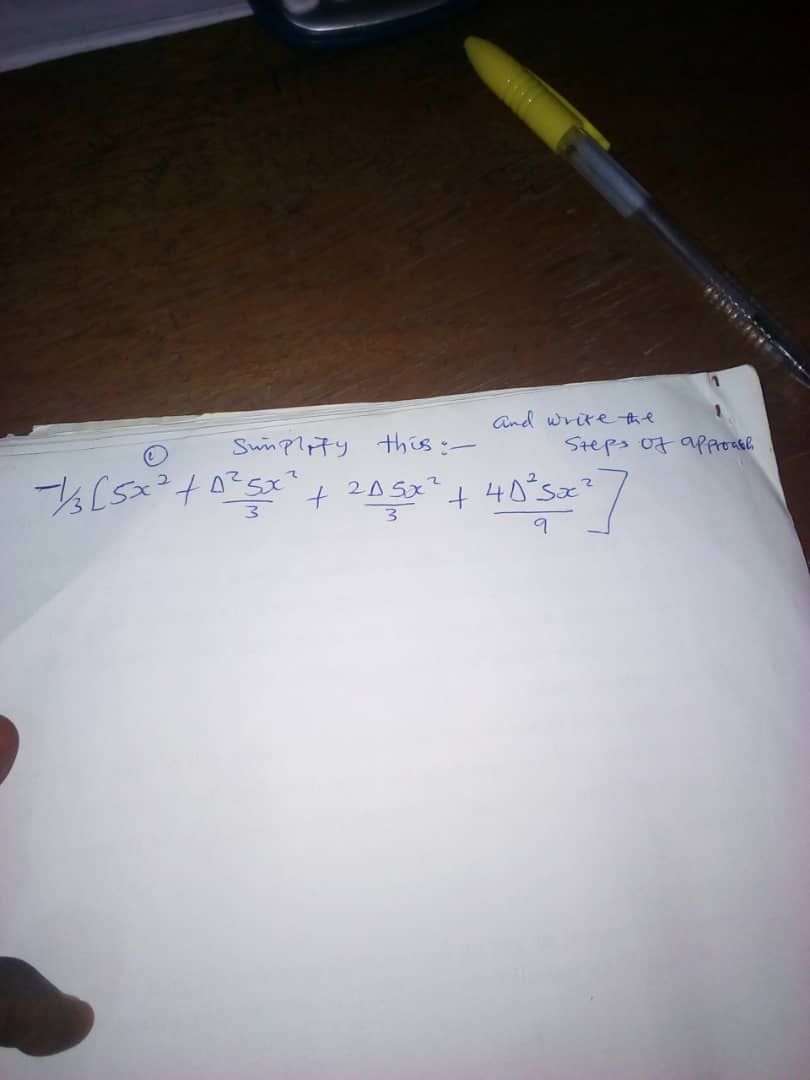 ① Simplify this :— and write the
steps of approach
-1/3 [5x² + Δ²5x²/3 + 2Δ5x²/3 + 4Δ²5x²/9]